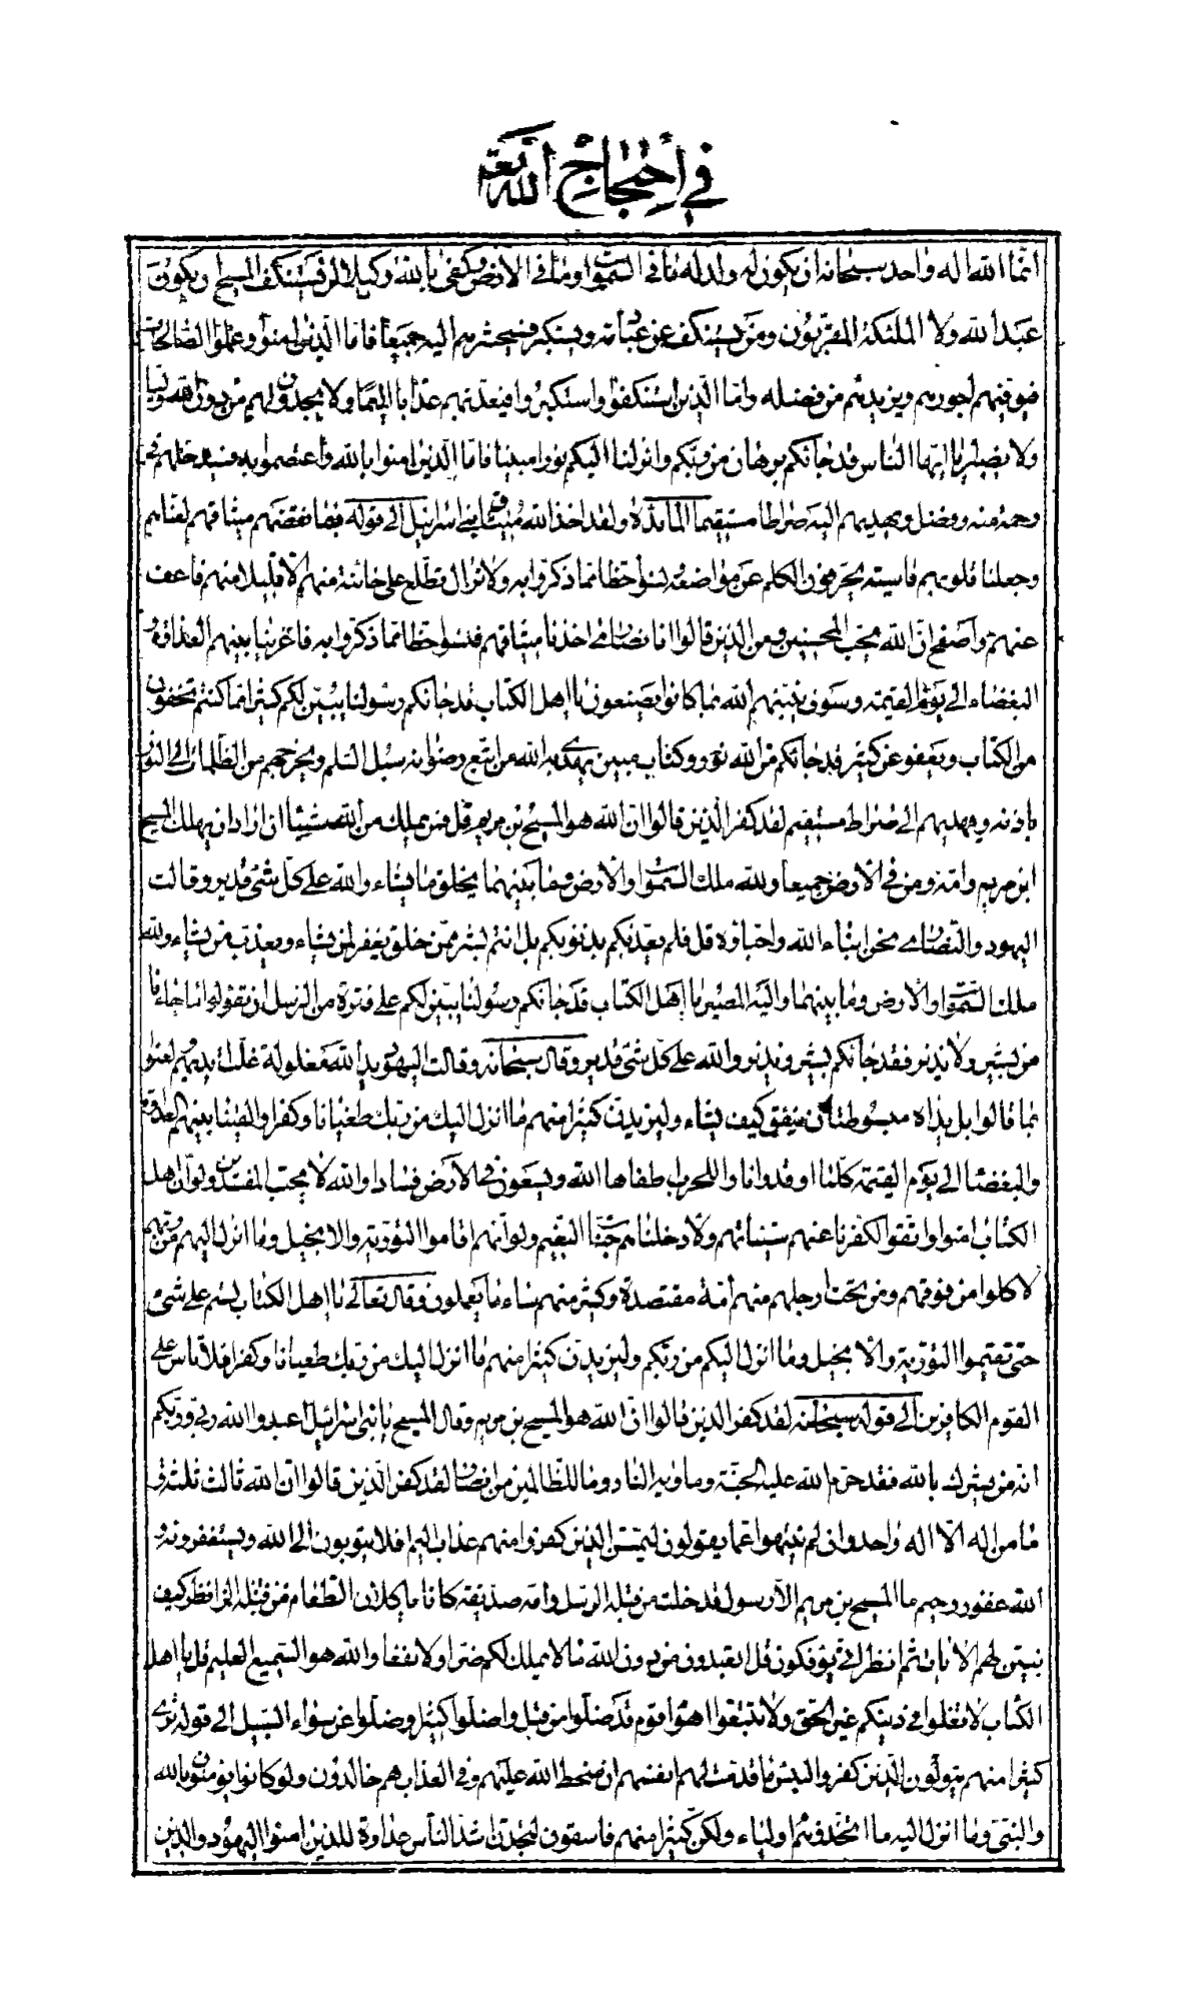 في احتجاج الله تعالى
انما الله اله واحد سبحانه ان يكون له ولد له ما في السموات وما في الارض وكفى بالله وكيلا لن يستنكف المسيح ان يكون
عبدا لله ولا الملئكة المقربون ومن يستنكف عن عبادته ويستكبر فسيحشرهم اليه جميعا فاما الذين امنوا وعملوا الصالحات
فيوفيهم اجورهم ويزيدهم من فضله واما الذين استنكفوا واستكبروا فيعذبهم عذابا اليما ولا يجدون لهم من دون الله وليا
ولا نصيرا يا ايها الناس قد جائكم برهان من ربكم وانزلنا اليكم نورا مبينا فاما الذين امنوا بالله واعتصموا به فسيدخلهم في
رحمة منه وفضل ويهديهم اليه صراطا مستقيما المائدة ولقد اخذ الله ميثاق بني اسرائيل الى قوله فبما نقضهم ميثاقهم لعناهم
وجعلنا قلوبهم قاسية يحرفون الكلم عن مواضعه ونسوا حظا مما ذكروا به ولا تزال تطلع على خائنة منهم الا قليلا منهم فاعف
عنهم واصفح ان الله يحب المحسنين ومن الذين قالوا انا نصارى اخذنا ميثاقهم فنسوا حظا مما ذكروا به فاغرينا بينهم العداوة و
البغضاء الى يوم القيمة وسوف ينبئهم الله بما كانوا يصنعون يا اهل الكتاب قد جائكم رسولنا يبين لكم كثيرا مما كنتم تخفون
من الكتاب ويعفو عن كثير قد جائكم من الله نور وكتاب مبين يهدي به الله من اتبع رضوانه سبل السلم ويخرجهم من الظلمات الى النور
باذنه ويهديهم الى صراط مستقيم لقد كفر الذين قالوا ان الله هو المسيح بن مريم قل فمن يملك من الله شيئا ان اراد ان يهلك المسيح
ابن مريم وامه ومن في الارض جميعا ولله ملك السموات والارض وما بينهما يخلق ما يشاء والله على كل شئ قدير وقالت
اليهود والنصارى نحن ابناء الله واحباؤه قل فلم يعذبكم بذنوبكم بل انتم بشر ممن خلق يغفر لمن يشاء ويعذب من يشاء ولله
ملك السموات والارض وما بينهما واليه المصير يا اهل الكتاب قد جائكم رسولنا يبين لكم على فترة من الرسل ان تقولوا ما جاءنا
من بشير ولا نذير فقد جائكم بشير ونذير والله على كل شئ قدير وقال سبحانه وقالت اليهود يد الله مغلولة غلت ايديهم ولعنوا
بما قالوا بل يداه مبسوطتان ينفق كيف يشاء وليزيدن كثيرا منهم ما انزل اليك من ربك طغيانا وكفرا والقينا بينهم العداوة
والبغضا الى يوم القيمة كلما اوقدوا نارا للحرب اطفاها الله ويسعون في الارض فسادا والله لا يحب المفسدين ولو ان اهل
الكتاب امنوا واتقوا لكفرنا عنهم سيئاتهم ولادخلناهم جنات النعيم ولو انهم اقاموا التورية والانجيل وما انزل اليهم من ربهم
لاكلوا من فوقهم ومن تحت ارجلهم منهم امة مقتصدة وكثير منهم ساء ما يعملون وقال تعالى يا اهل الكتاب لستم على شئ
حتى تقيموا التورية والانجيل وما انزل اليكم من ربكم وليزيدن كثيرا منهم ما انزل اليك من ربك طغيانا وكفرا فلا تاس على
القوم الكافرين الى قوله سبحانه لقد كفر الذين قالوا ان الله هو المسيح بن مريم وقال المسيح يا بني اسرائيل اعبدوا الله ربي وربكم
انه من يشرك بالله فقد حرم الله عليه الجنة وماويه النار وما للظالمين من انصار لقد كفر الذين قالوا ان الله ثالث ثلثة و
ما من اله الا اله واحد وان لم ينتهوا عما يقولون ليمسن الذين كفروا منهم عذاب اليم افلا يتوبون الى الله ويستغفرونه و
الله غفور رحيم ما المسيح بن مريم الا رسول قد خلت من قبله الرسل وامه صديقة كانا ياكلان الطعام من قبله انظر كيف
نبين لهم الايات ثم انظر انى يؤفكون قل اتعبدون من دون الله ما لا يملك لكم ضرا ولا نفعا والله هو السميع العليم قل يا اهل
الكتاب لا تغلوا في دينكم غير الحق ولا تتبعوا اهواء قوم قد ضلوا من قبل واضلوا كثيرا وضلوا عن سواء السبيل الى قوله ترى
كثيرا منهم يتولون الذين كفروا لبئس ما قدمت لهم انفسهم ان سخط الله عليهم وفي العذاب هم خالدون ولو كانوا يؤمنون بالله
والنبي وما انزل اليه ما اتخذوهم اولياء ولكن كثيرا منهم فاسقون لتجدن اشد الناس عداوة للذين امنوا اليهود والذين